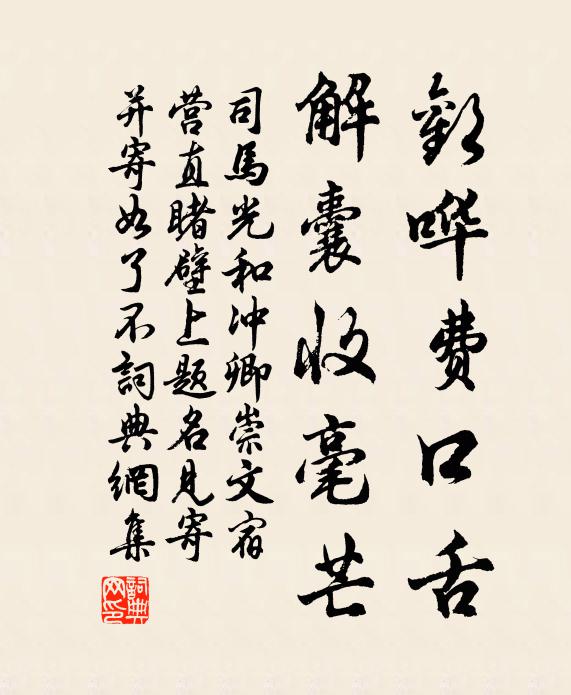 歡哗费口舌
解囊收毫芒
司馬光和冲卿崇文宿
营直睹壁上題名見寄
并寄如了不詞典網集
詞典网印